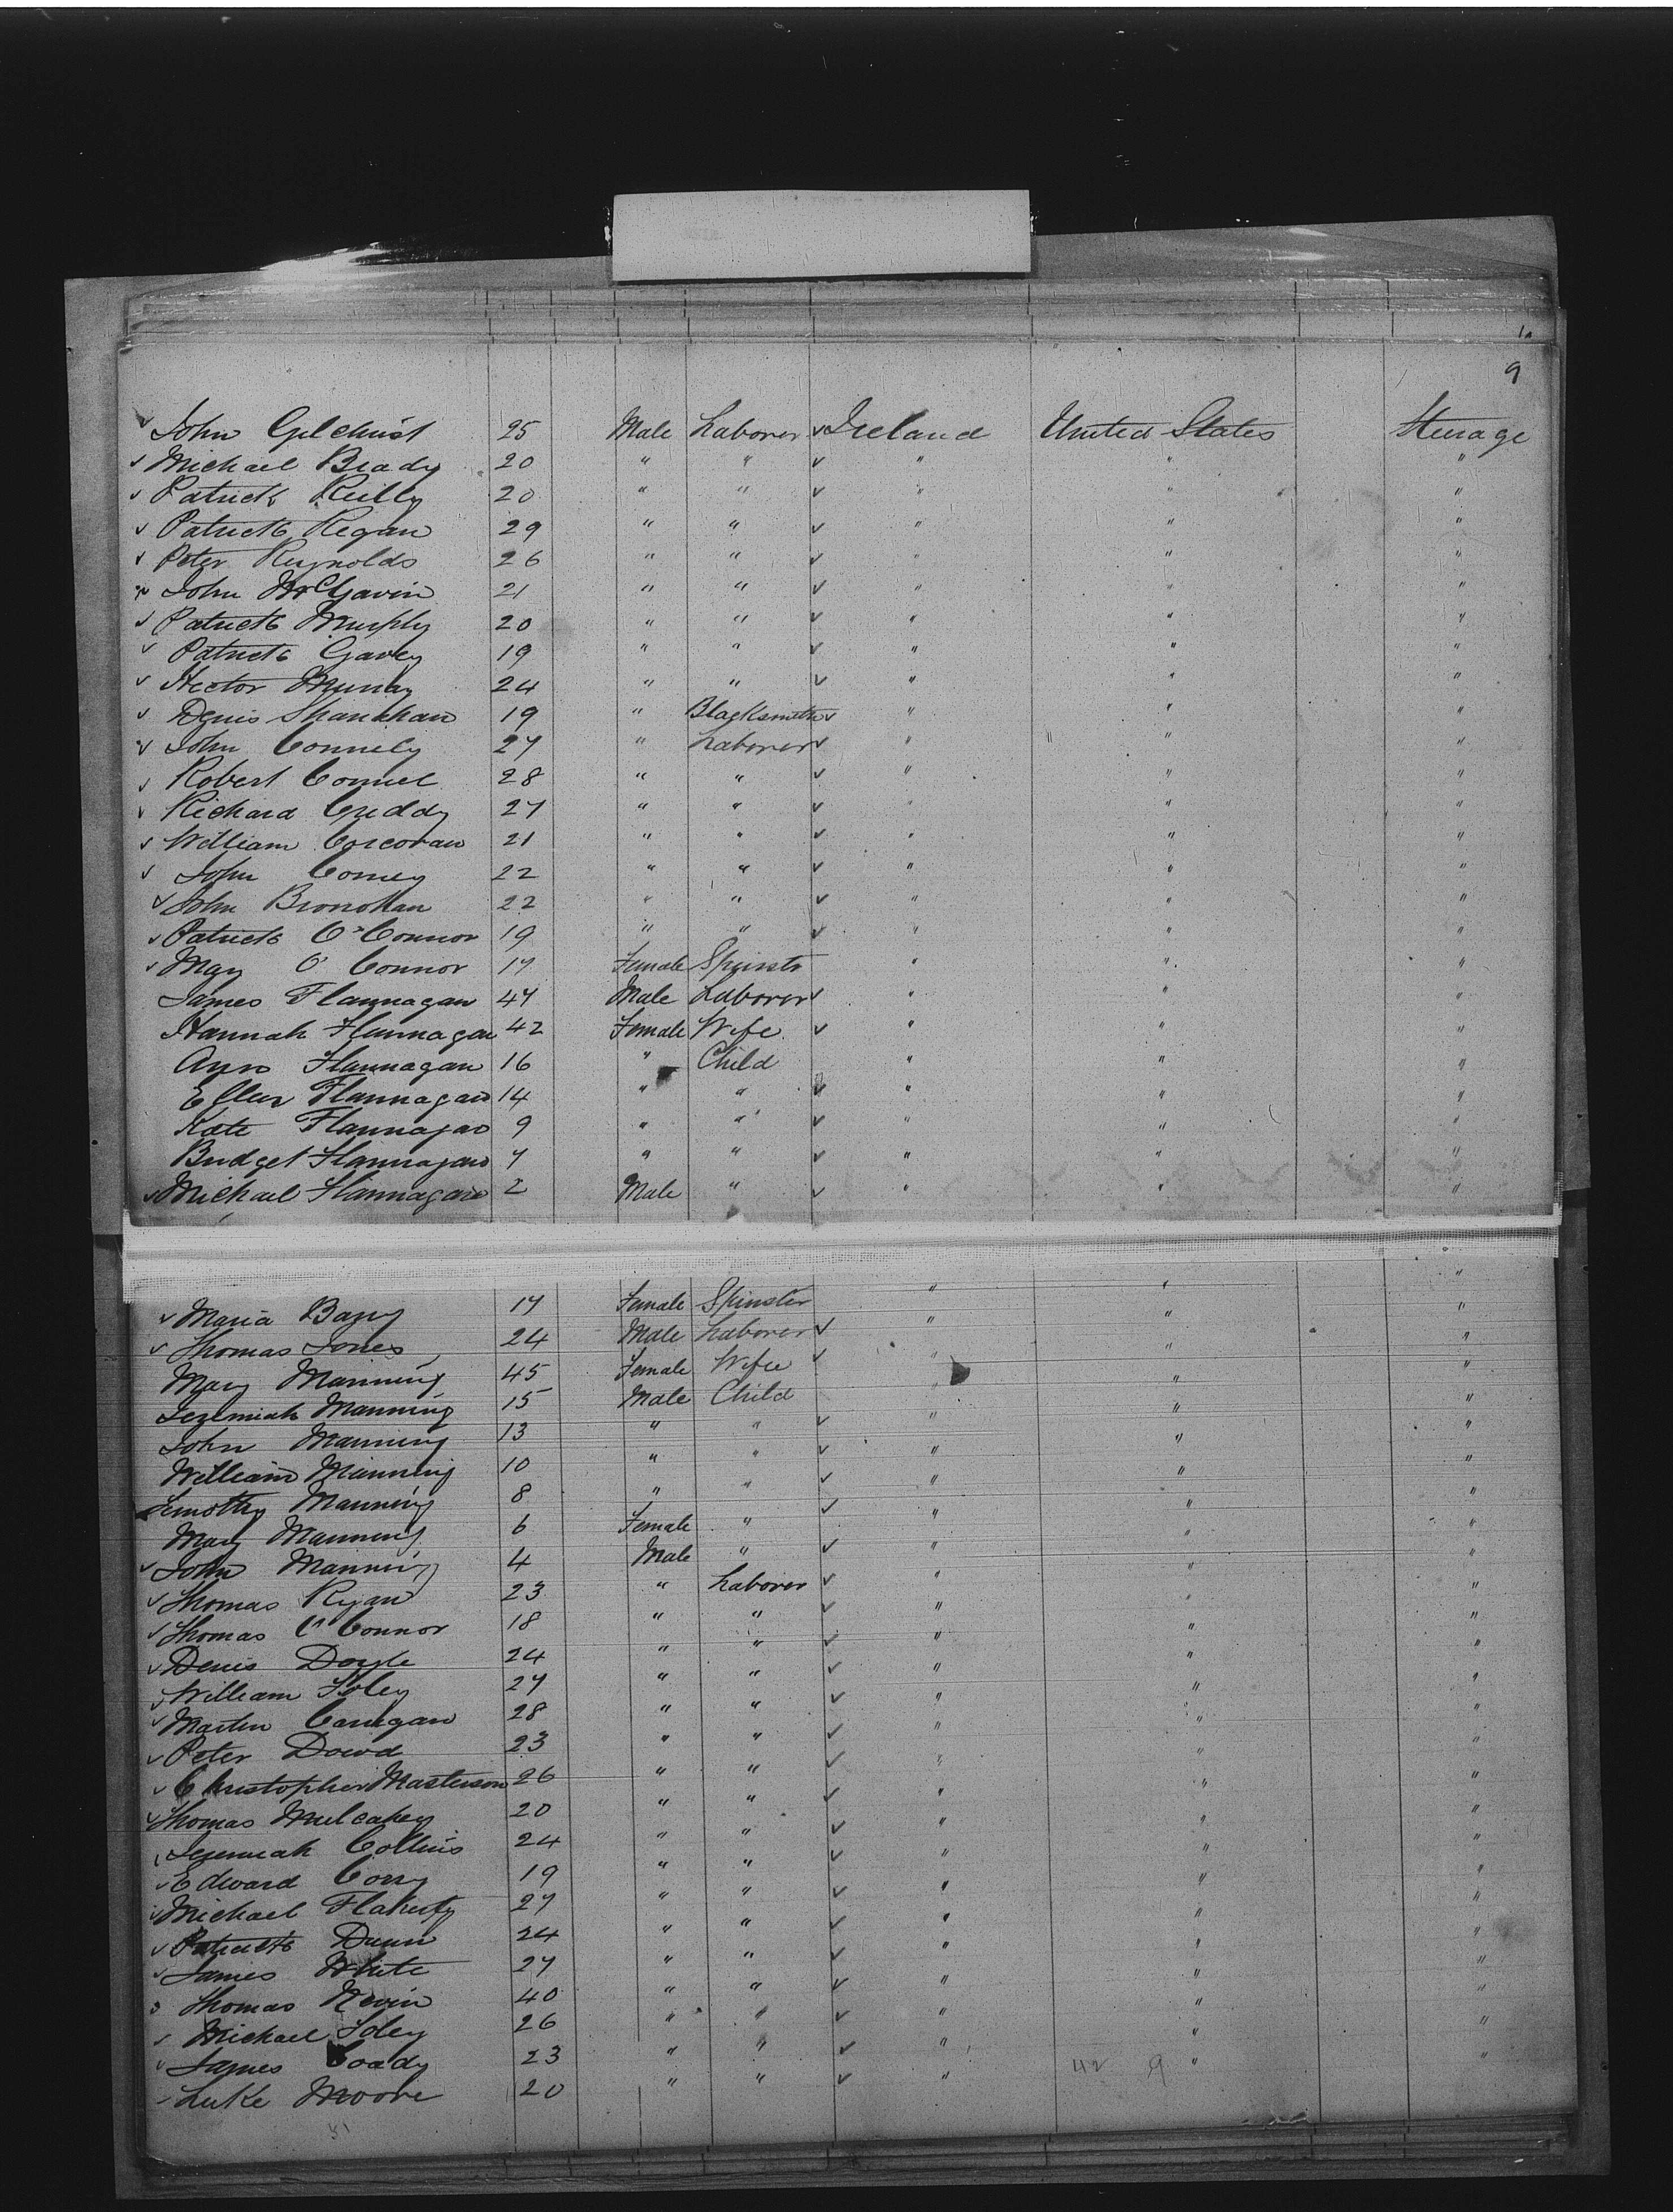 9
John Gilchrist 25 Male Laborer ✓ Ireland United States Steerage
Michael Brady 20 " " ✓ " " "
Patrick Reilly 20 " " ✓ " " "
Patrick Regan 29 " " ✓ " " "
Peter Reynolds 26 " " ✓ " " "
John McGavin 21 " " ✓ " " "
Patrick Murphy 20 " " ✓ " " "
Patrick Gavey 19 " " ✓ " " "
Hector Murray 24 " " ✓ " " "
Denis Shanahan 19 " Blacksmith ✓ " " "
John Connely 27 " Laborer ✓ " " "
Robert Connel 28 " " ✓ " " "
Richard Cuddy 27 " " ✓ " " "
William Corcoran 21 " " ✓ " " "
John Comey 22 " " ✓ " " "
John Bronohan 22 " " ✓ " " "
Patrick O'Connor 19 " " ✓ " " "
May O Connor 17 Female Spinstr " " "
James Flannagan 47 Male Laborer ✓ " " "
Hannah Flannagan 42 Female Wife ✓ " " "
Ann Flannagan 16 " Child " " "
Ellen Flannagan 14 " " ✓ " " "
Kate Flannagan 9 " " ✓ " " "
Bridget Flannagan 7 " " ✓ " " "
Michael Flannagan 2 Male " ✓ " " "
Maria Barry 17 Female Spinster " " "
Thomas Jones 24 Male Laborer ✓ " " "
Mary Manning 45 Female Wife ✓ " " "
Jeremiah Manning 15 Male Child " " "
John Manning 13 " " ✓ " " "
William Manning 10 " " ✓ " " "
Timothy Manning 8 " " ✓ " " "
Mary Manning 6 Female " ✓ " " "
John Manning 4 Male " ✓ " " "
Thomas Ryan 23 " Laborer ✓ " " "
Thomas O'Connor 18 " " ✓ " " "
Denis Doyle 24 " " ✓ " " "
William Foley 27 " " ✓ " " "
Martin Carrigan 28 " " ✓ " " "
Peter Dowd 23 " " ✓ " " "
Christopher Masterson 26 " " ✓ " " "
Thomas Mulcahey 20 " " ✓ " " "
Jeremiah Collins 24 " " ✓ " " "
Edward Corry 19 " " ✓ " " "
Michael Flaherty 27 " " ✓ " " "
Patrick Dunn 24 " " ✓ " " "
James White 27 " " ✓ " " "
Thomas Nevin 40 " " ✓ " " "
Michael Foley 26 " " ✓ " " "
James Coady 23 " " ✓ " " "
Luke Moore 20 " " ✓ " " "
42 9
51